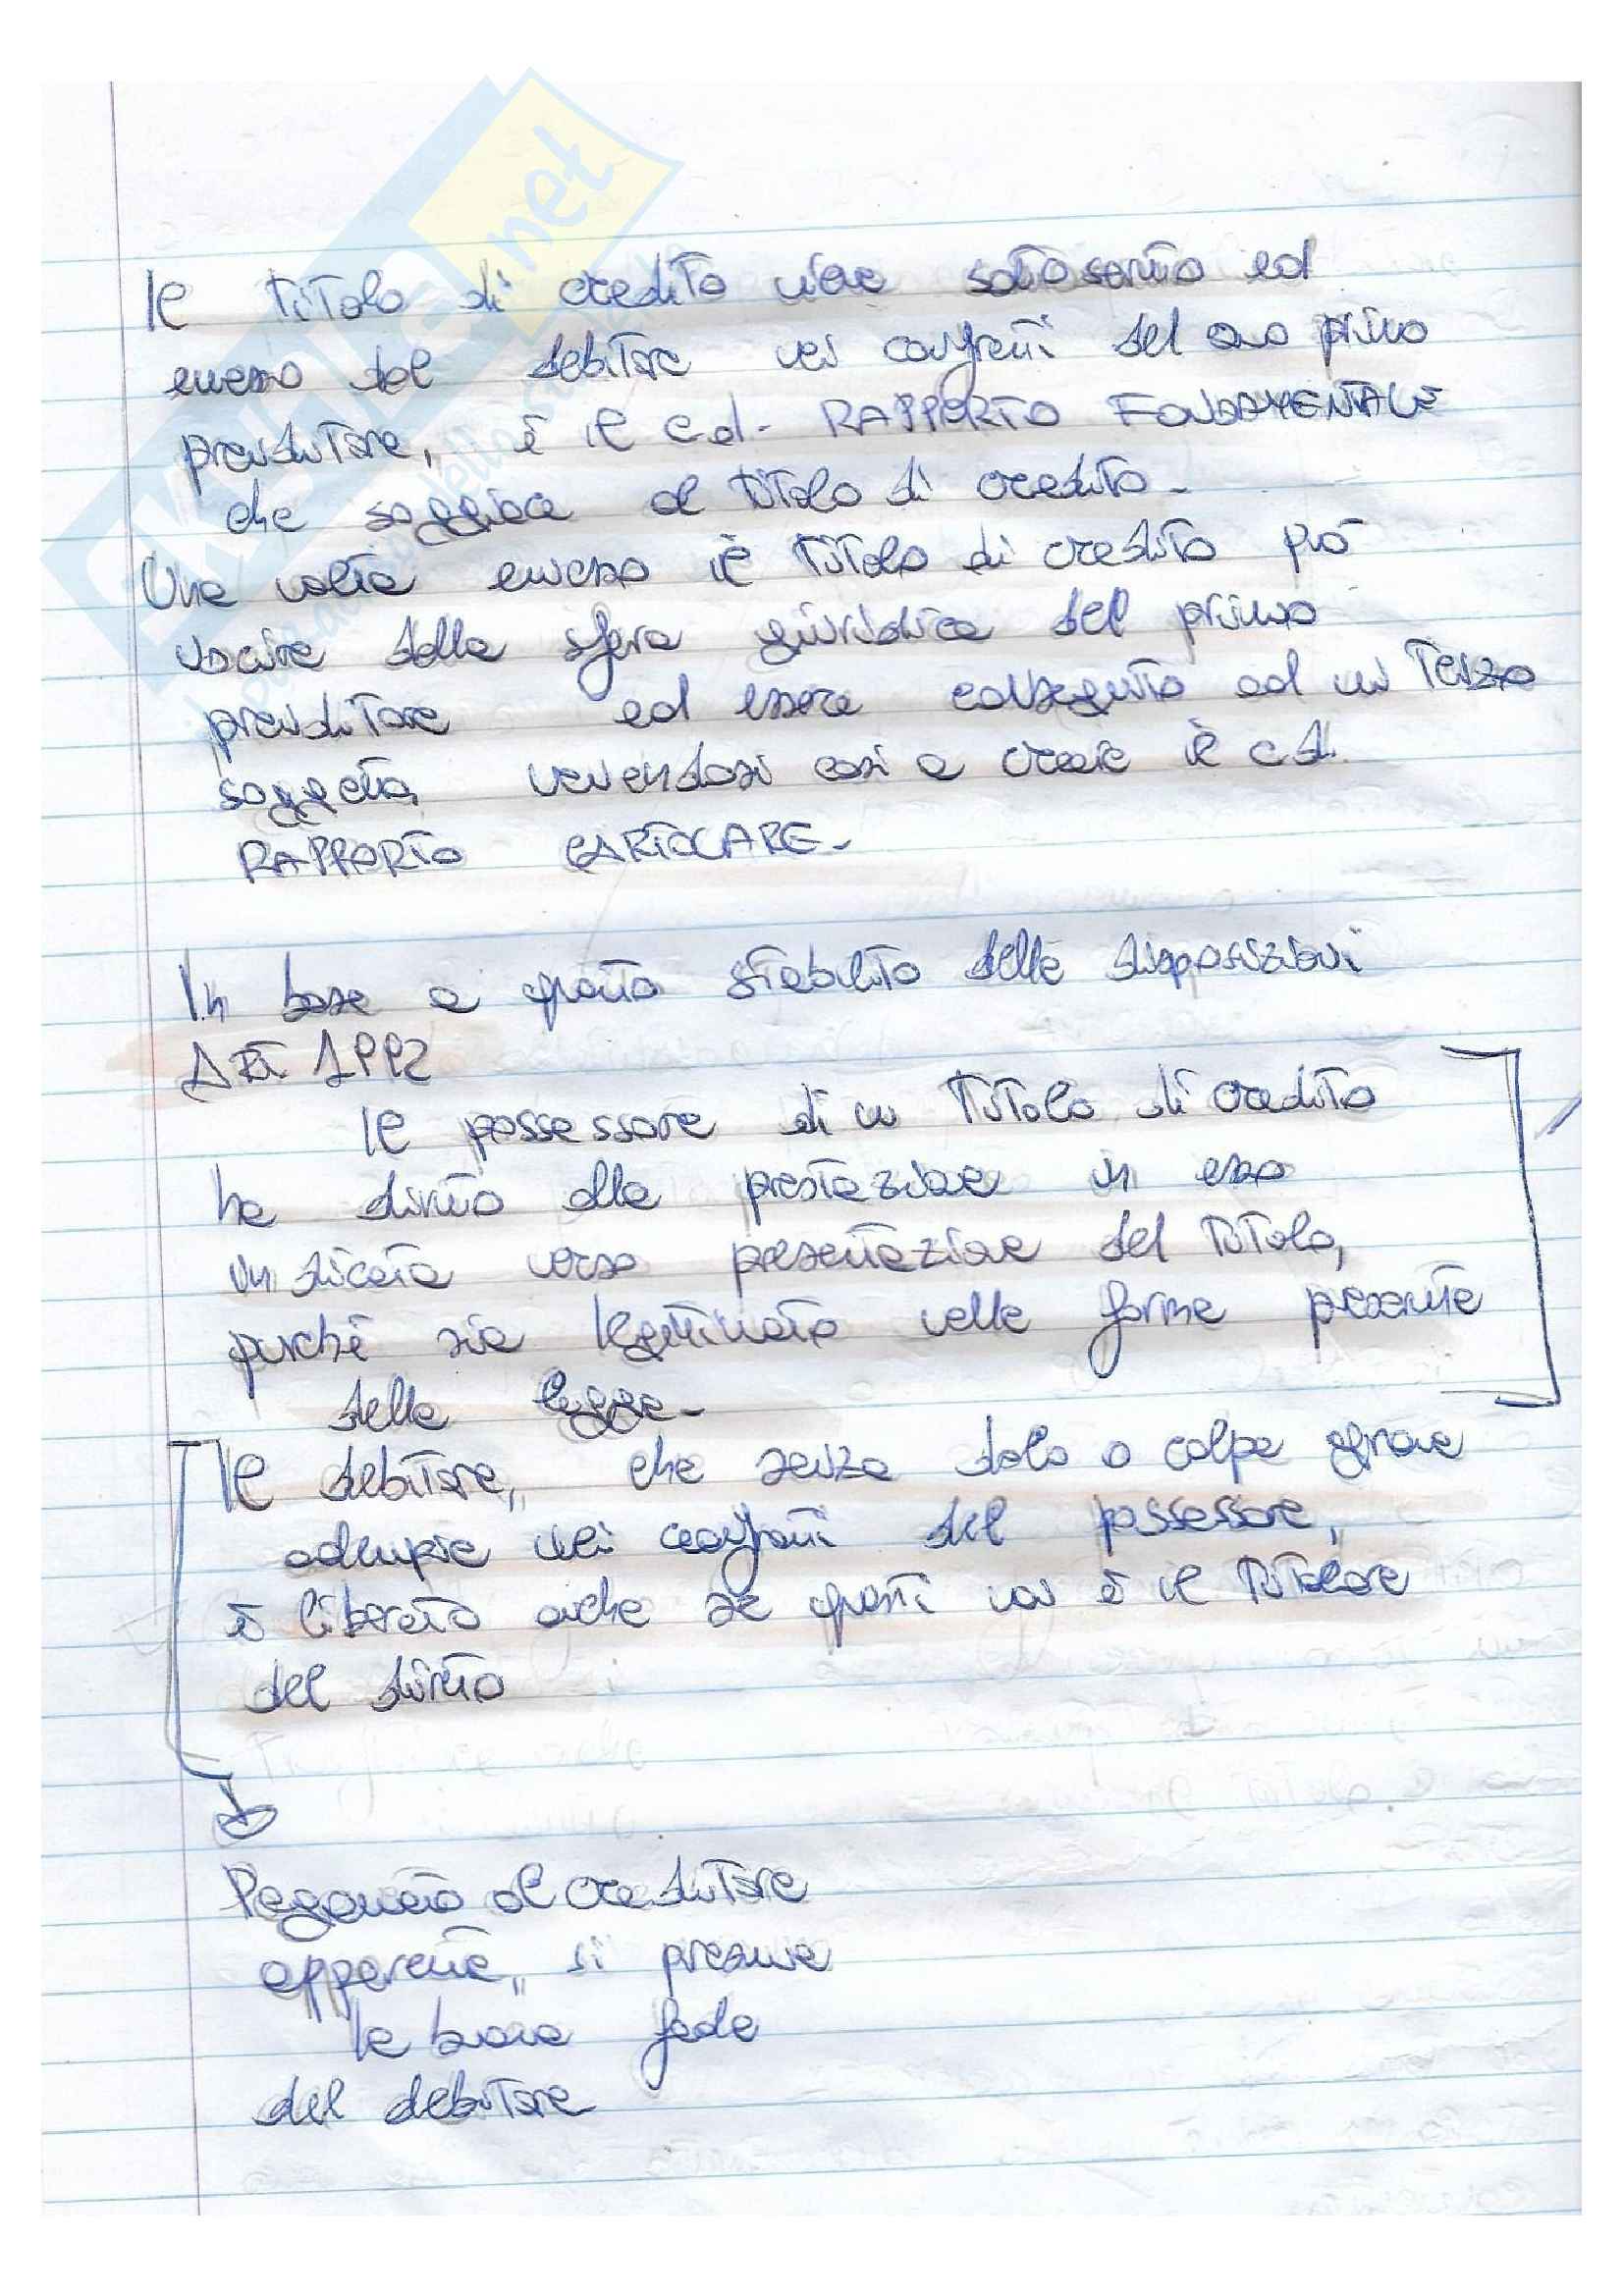 SKUOLA.net
Il titolo di credito viene sottoscritto ed
emesso dal debitore nei confronti del suo primo
prenditore, è il c.d. RAPPORTO FONDAMENTALE
che soggiace al titolo di credito.
Una volta emesso il titolo di credito può
uscire dalla sfera giuridica del primo
prenditore ed essere consegnato ad un terzo
soggetto, venendosi così a creare il c.d.
RAPPORTO CARTOLARE.
In base a quanto stabilito dalle disposizioni
ART. 1992
Il possessore di un titolo di credito
ha diritto alla prestazione in esso
indicata verso presentazione del titolo,
purché sia legittimato nelle forme prescritte
dalla legge.
Il debitore, che senza dolo o colpa grave
adempie nei confronti del possessore,
è liberato anche se questi non è il titolare
del diritto
Pagamento al creditore
apparente, si presume
la buona fede
del debitore